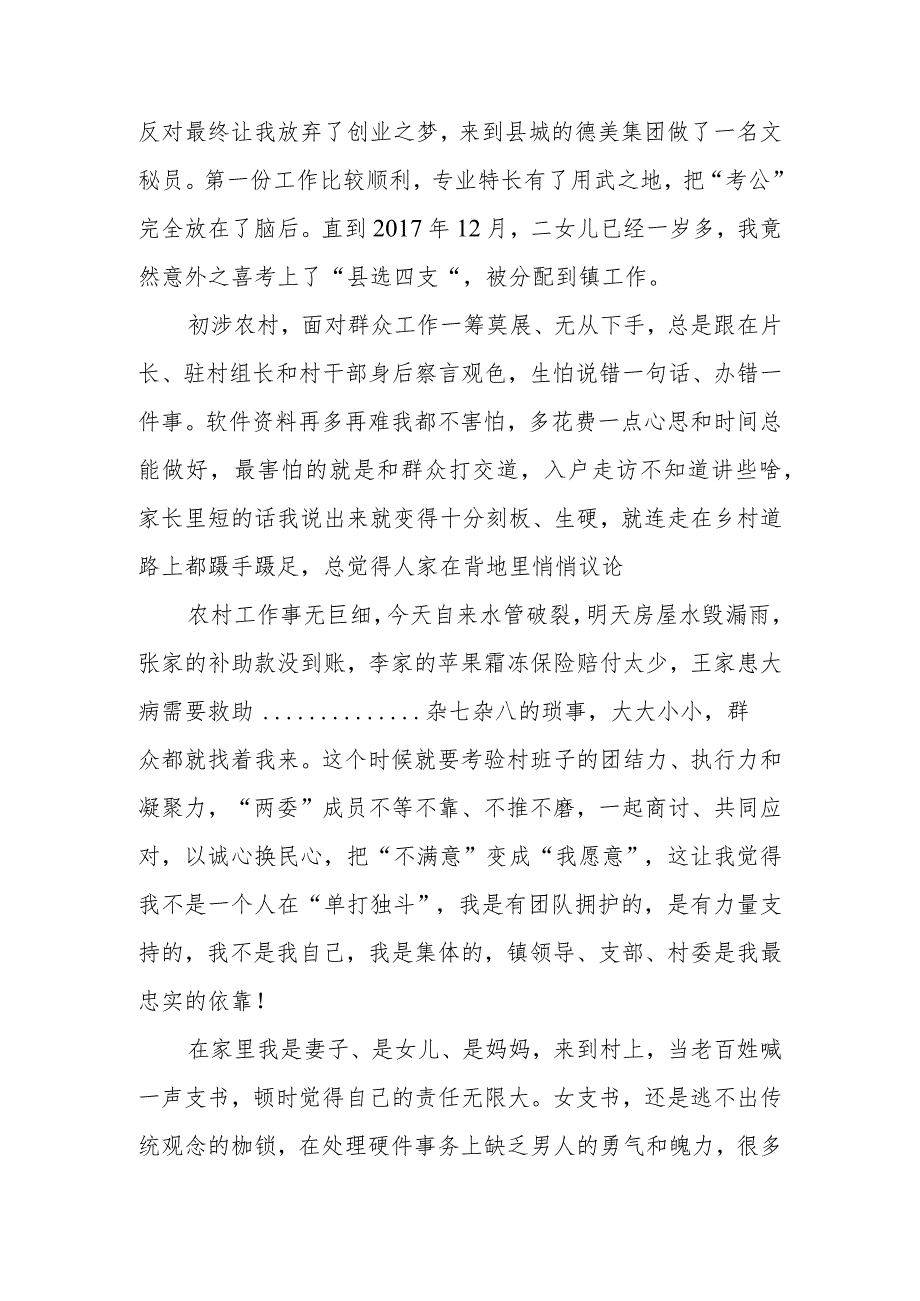 反对最终让我放弃了创业之梦，来到县城的德美集团做了一名文
秘员。第一份工作比较顺利，专业特长有了用武之地，把“考公”
完全放在了脑后。直到 2017 年 12 月，二女儿已经一岁多，我竟
然意外之喜考上了“县选四支“，被分配到镇工作。
初涉农村，面对群众工作一筹莫展、无从下手，总是跟在片
长、驻村组长和村干部身后察言观色，生怕说错一句话、办错一
件事。软件资料再多再难我都不害怕，多花费一点心思和时间总
能做好，最害怕的就是和群众打交道，入户走访不知道讲些啥，
家长里短的话我说出来就变得十分刻板、生硬，就连走在乡村道
路上都蹑手蹑足，总觉得人家在背地里悄悄议论
农村工作事无巨细，今天自来水管破裂，明天房屋水毁漏雨，
张家的补助款没到账，李家的苹果霜冻保险赔付太少，王家患大
病需要救助 ..............杂七杂八的琐事，大大小小，群
众都就找着我来。这个时候就要考验村班子的团结力、执行力和
凝聚力，“两委”成员不等不靠、不推不磨，一起商讨、共同应
对，以诚心换民心，把“不满意”变成“我愿意”，这让我觉得
我不是一个人在“单打独斗”，我是有团队拥护的，是有力量支
持的，我不是我自己，我是集体的，镇领导、支部、村委是我最
忠实的依靠！
在家里我是妻子、是女儿、是妈妈，来到村上，当老百姓喊
一声支书，顿时觉得自己的责任无限大。女支书，还是逃不出传
统观念的枷锁，在处理硬件事务上缺乏男人的勇气和魄力，很多